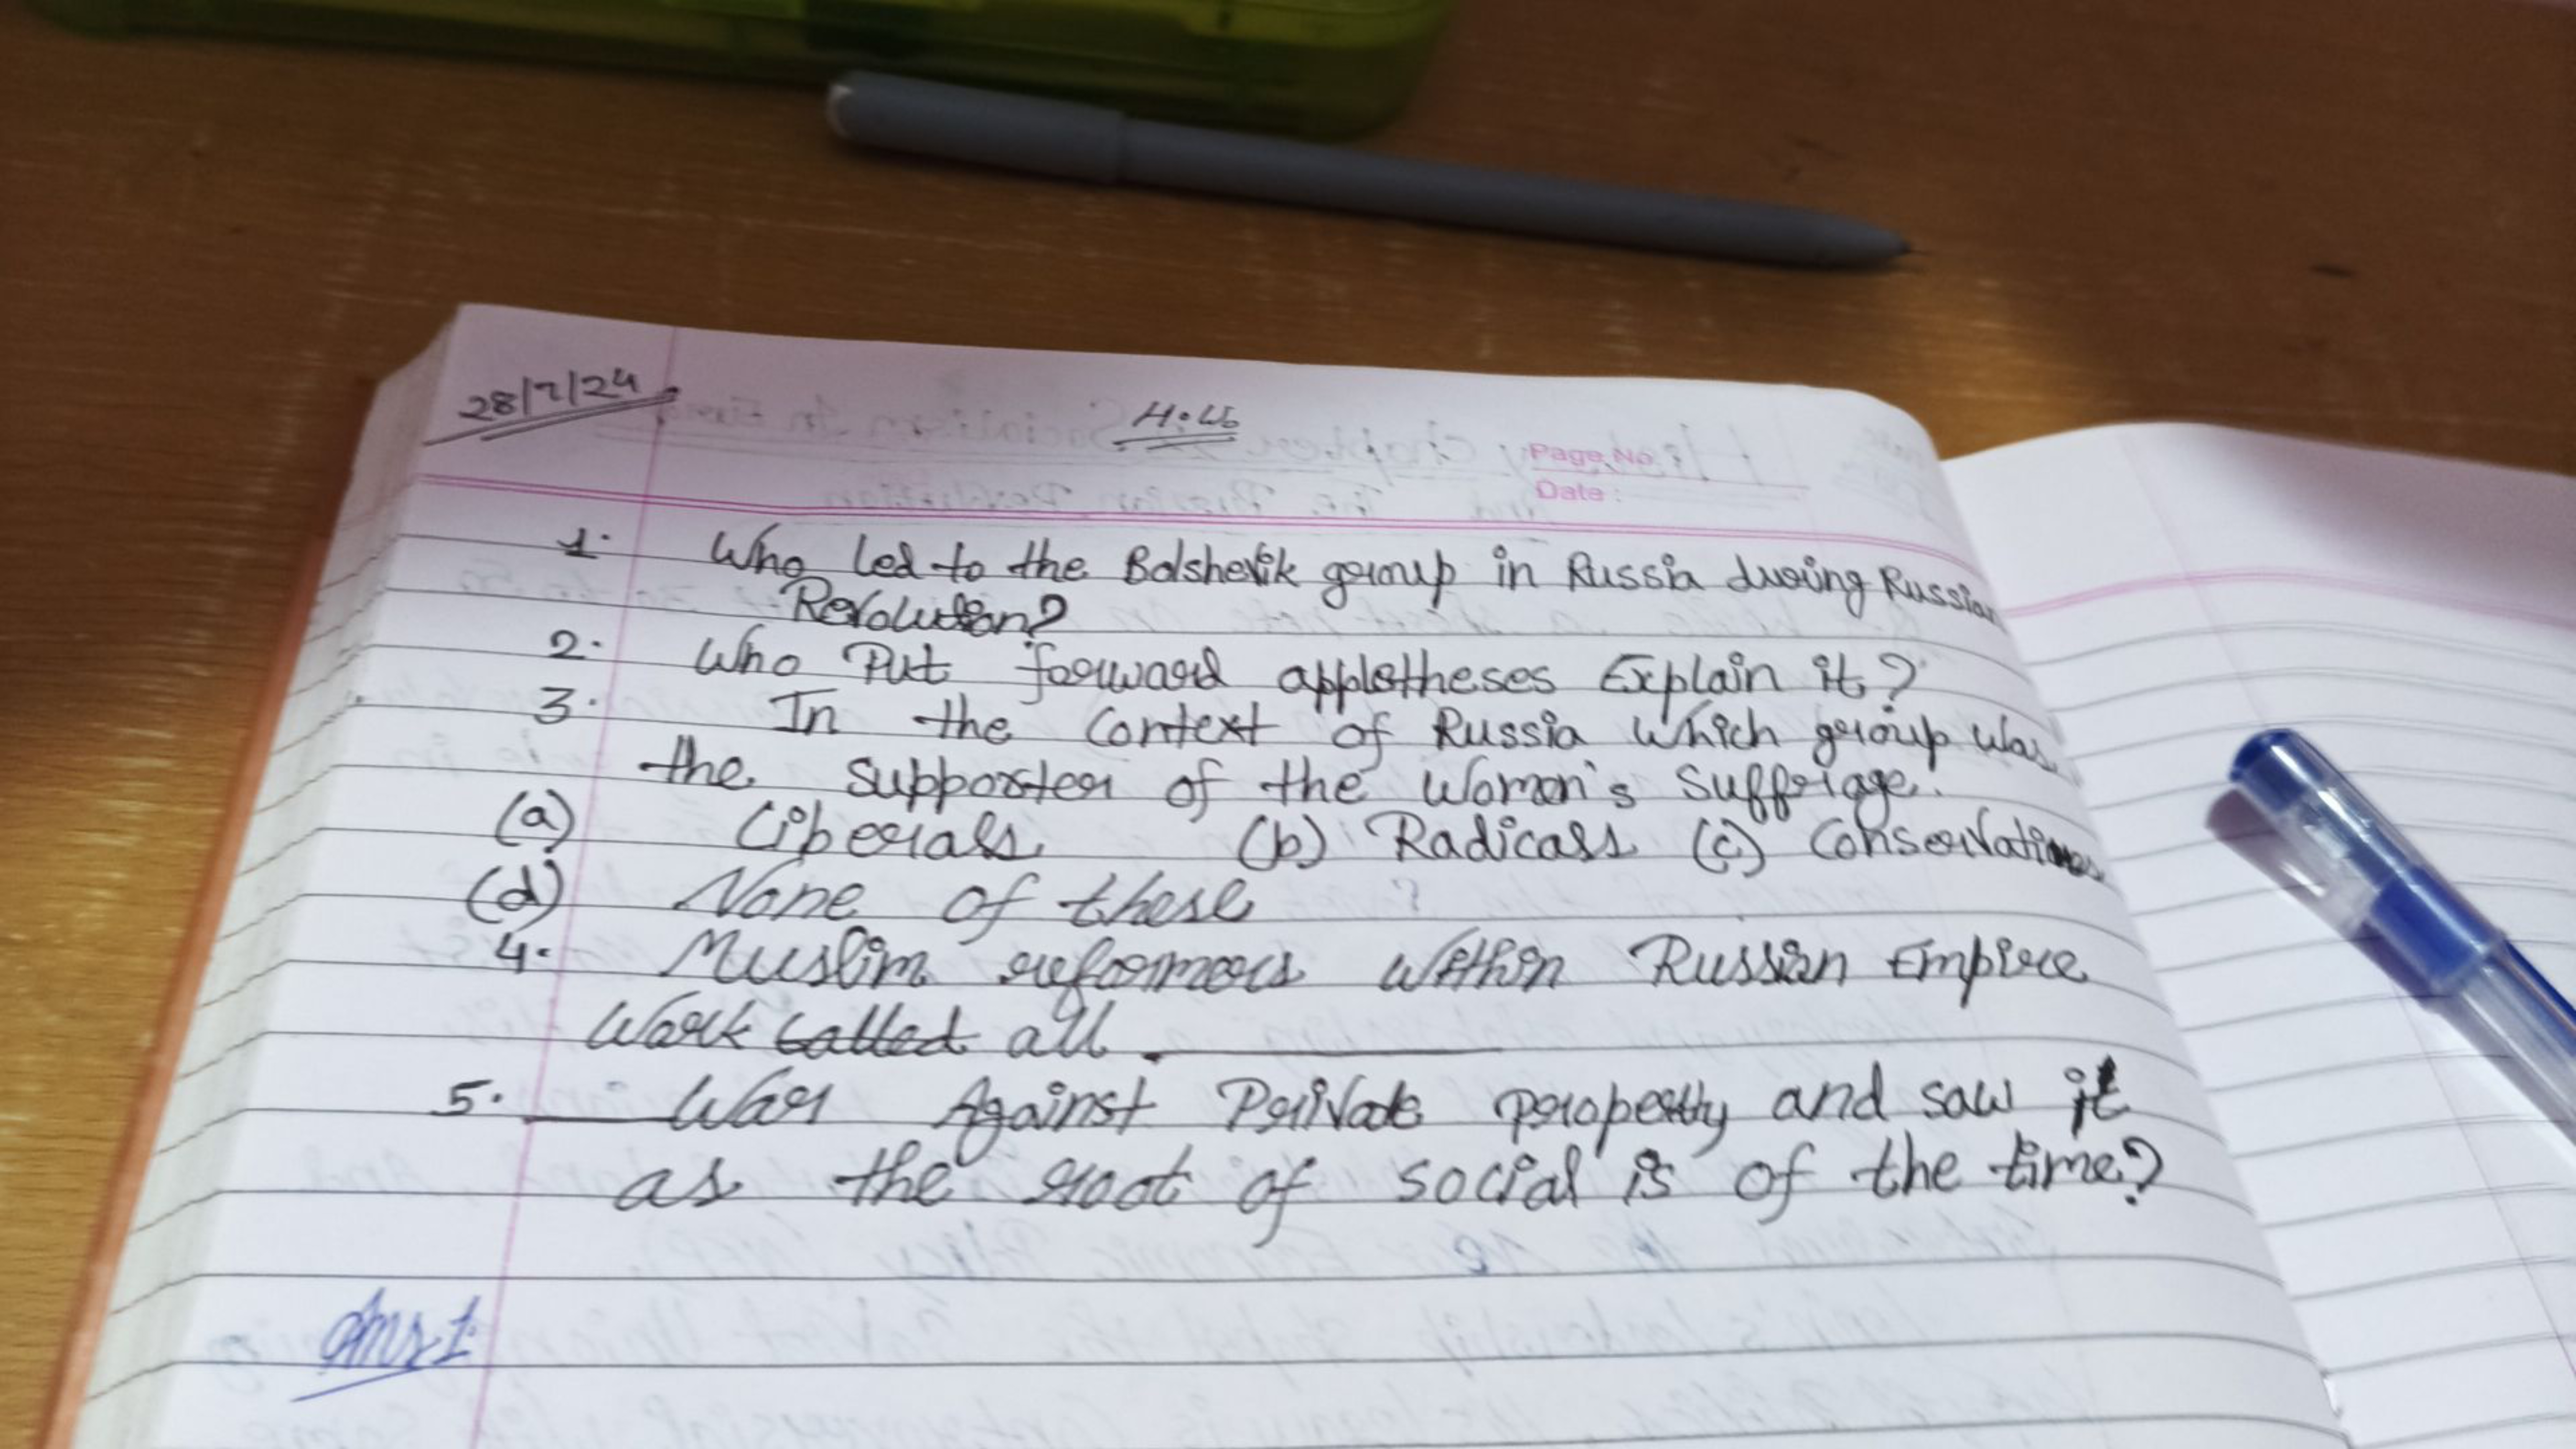 28/7/24
H.W
Page No.
Date:
1. Who led to the Bolshevik group in Russia during Russian
Revolution?
2. Who Put forwardappletheses Explain it?
3. In the Context of Russia which group was
the supporter of the Women's suffrage.
(a) Liberals (b) Radicals (c) Conservatives
(d) None of these
4. Muslim reformers within Russian Empire
Work called all ______
5. ______ War Against Private property and saw it
as the root of social is of the time?
Ans 1.